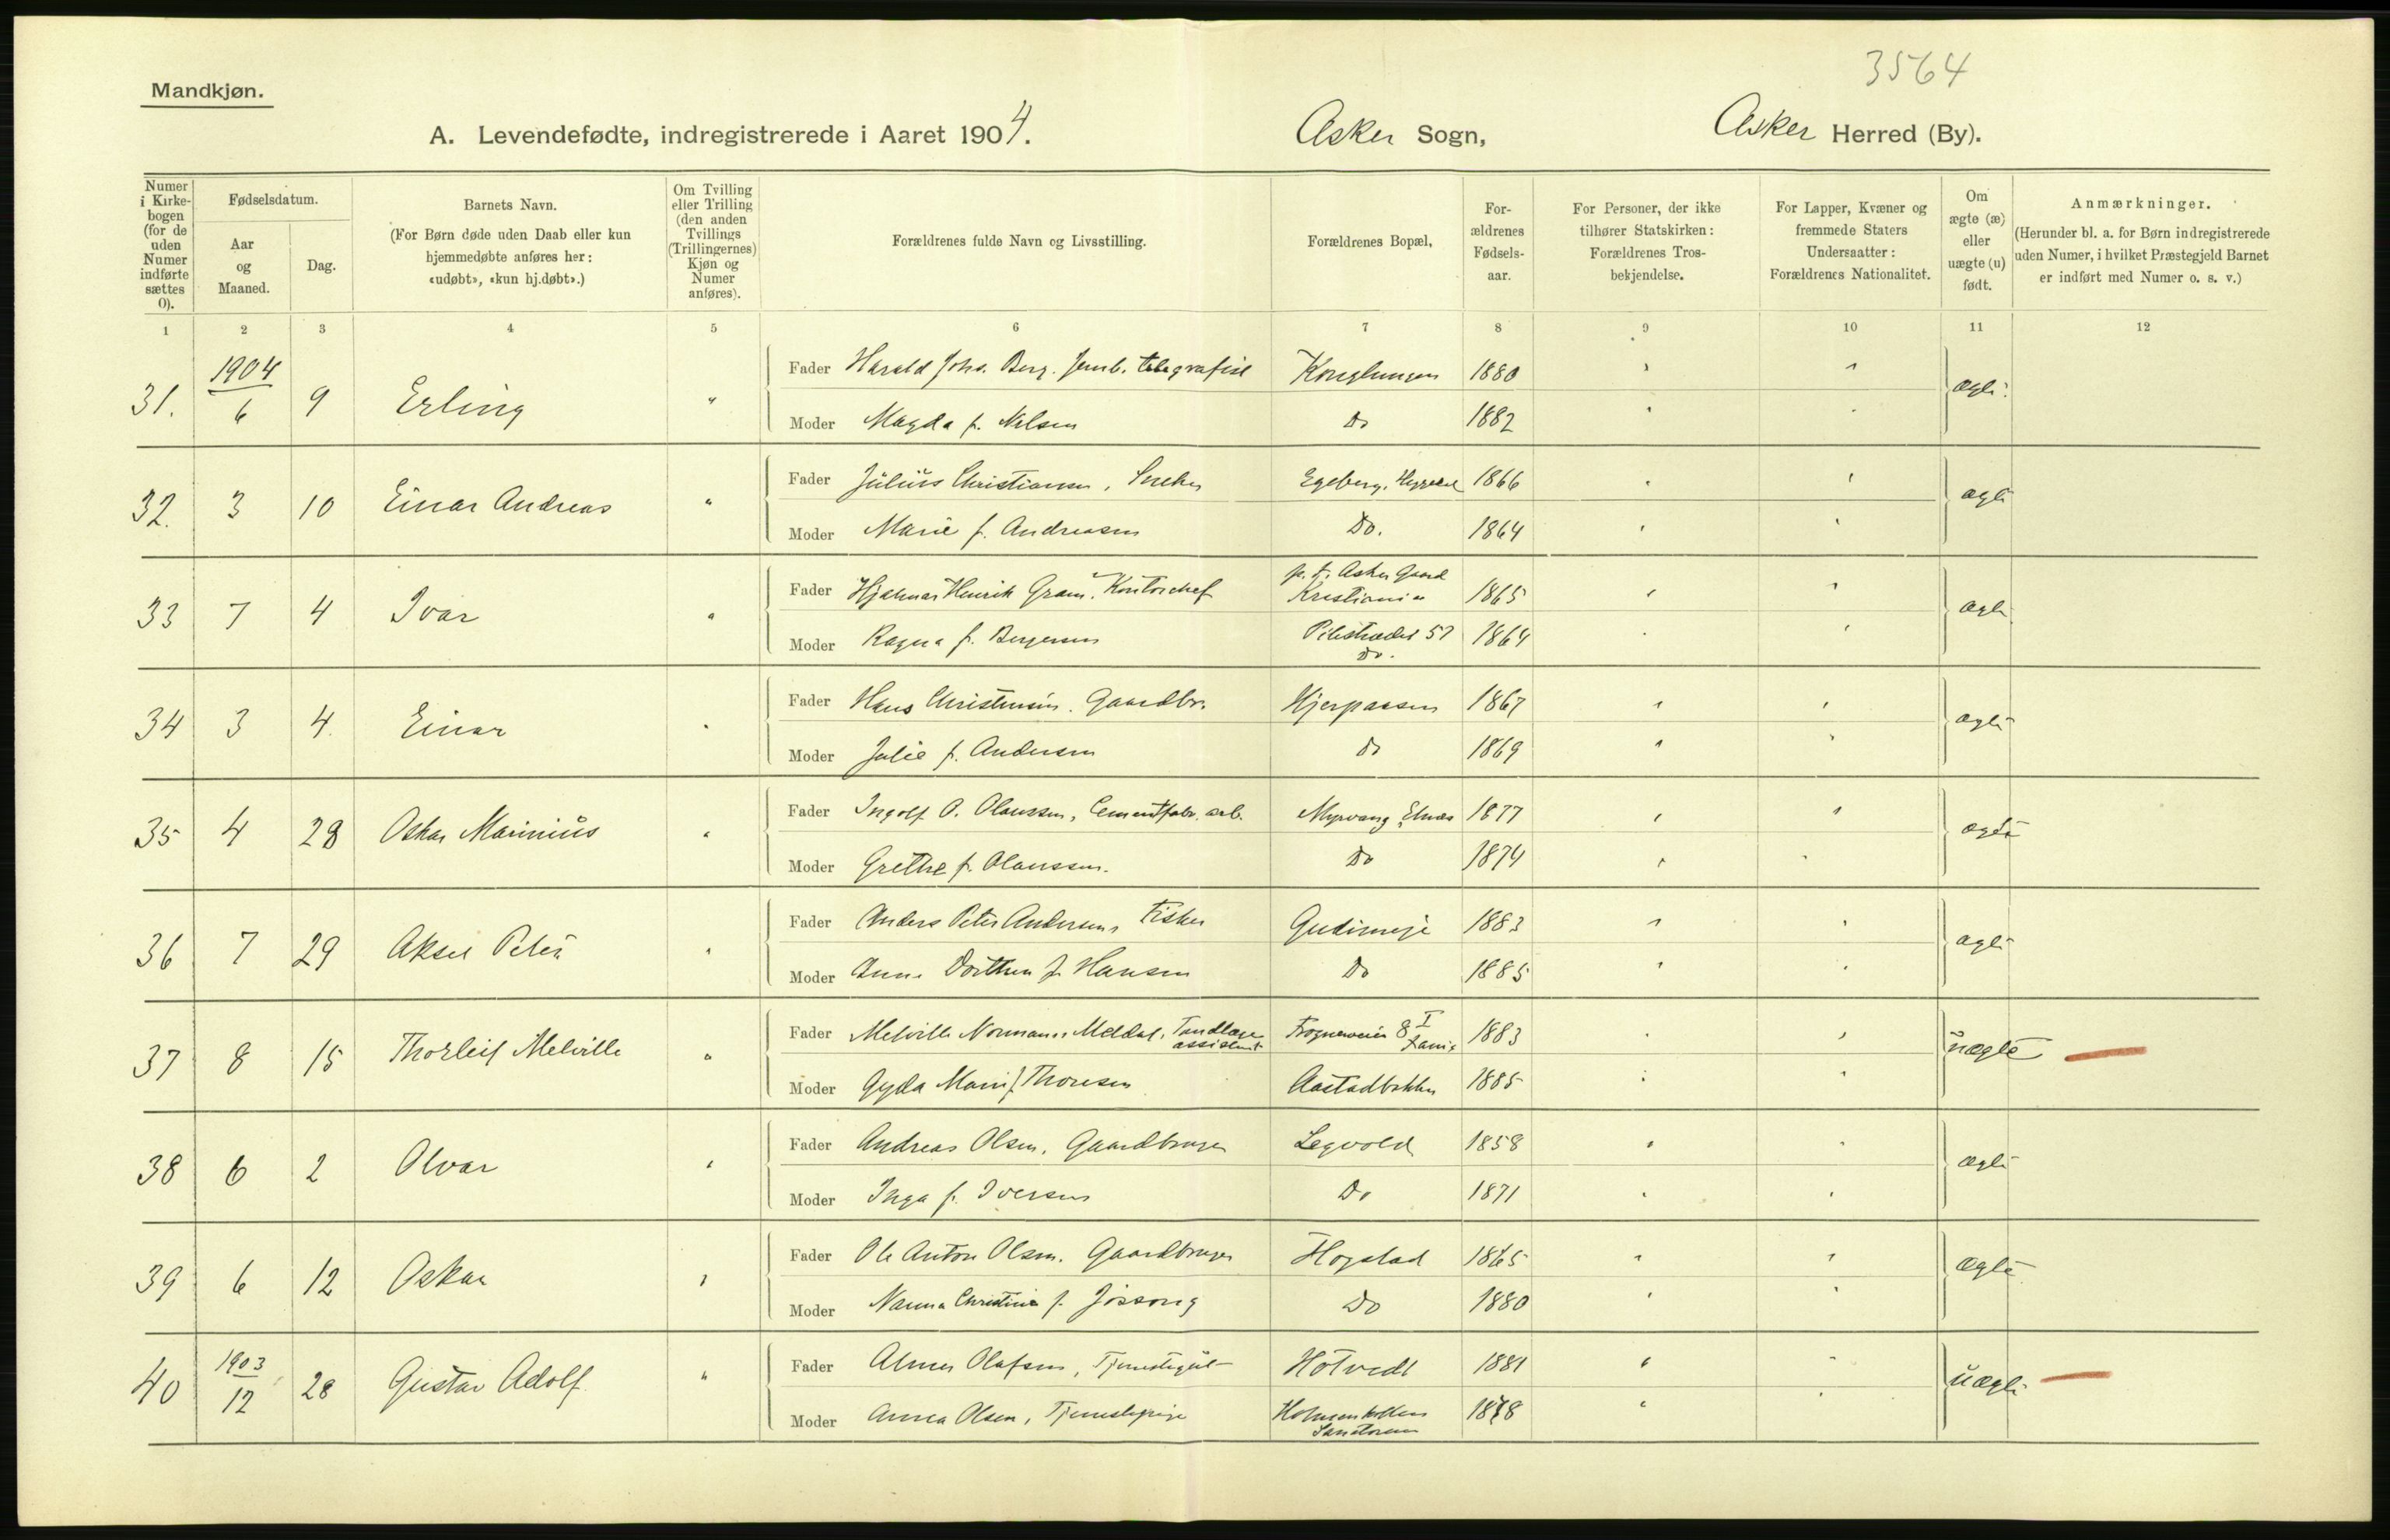 3564
Mandkjøn.
A. Levendefødte, indregistrerede i Aaret 1904. Asker Sogn, Asker Herred (By).
Numer i Kirkebogen (for de uden Numer indførte sættes 0).
Fødselsdatum.
Aar og Maaned.
Dag.
Barnets Navn.
(For Børn døde uden Daab eller kun hjemmedøbte anføres her: «udøbt», «kun hj.døbt».)
Om Tvilling eller Trilling (den anden Tvillings (Trillingernes) Kjøn og Numer anføres).
Forældrenes fulde Navn og Livsstilling.
Forældrenes Bopæl,
Forældrenes Fødselsaar.
For Personer, der ikke tilhører Statskirken: Forældrenes Trosbekjendelse.
For Lapper, Kvæner og fremmede Staters Undersaatter: Forældrenes Nationalitet.
Om ægte (æ) eller uægte (u) født.
Anmærkninger.
(Herunder bl. a. for Børn indregistrerede uden Numer, i hvilket Præstegjeld Barnet er indført med Numer o. s. v.)
1 2 3 4 5 6 7 8 9 10 11 12
31. 1904 6 9 Erling " Fader Harald Johs. Berg. Jernb. telegrafist Konglungen 1880 ægte
Moder Magda f. Nilsen Do 1882
32. 3 10 Einar Andreas " Fader Julius Christiansen, Snekker Egeberg, 1866 ægte
Moder Marie f. Andreasen Do. 1864
33 7 4 Ivar " Fader Hjalmar Henrik Gram, Kontorchef p. t. Asker Gaard Kristiania 1865 ægte
Moder Ragna f. Bergersen Pilestrædet 57 Do. 1864
34 3 4 Einar Fader Hans Christensen. Gaardbr. Hjerpaasen 1867 ægte
Moder Julie f. Andersen Do 1869
35 4 28 Oskar Marinius Fader Ingolf O. Olaussen, Cementfabr. arb. Myrvang, Elnæs 1877 ægte
Moder Grethe f. Olaussen. Do 1874
36 7 29 Aksel Peter Fader Anders Peter Andersen, Fisker 1883 ægte
Moder Anne Dorthea f. Hansen Do 1885
37 8 15 Thorleif Melville " Fader Melville Normann Meldal, Tandlæge assistent Frognerveien 8 I 1883 uægte
Moder Gyda Marie f Thoresen Aastadbakken 1885
38 6 2 Olvar Fader Andreas Olsen, Gaardbruger Legvold 1858 ægte
Moder Inga f. Iversen Do 1871
39 6 12 Oskar Fader Ole Anton Olsen. Gaardbruger Hogstad 1865 ægte
Moder Nanna Christine f. Jøssong Do 1880
40 1903 12 28 Gustav Adolf " Fader Olafsen, Tjenestegut Hotvedt 1881 uægte
Moder Anna Olsen, Tjenestepige Holmenkollen Sanatorium 1878